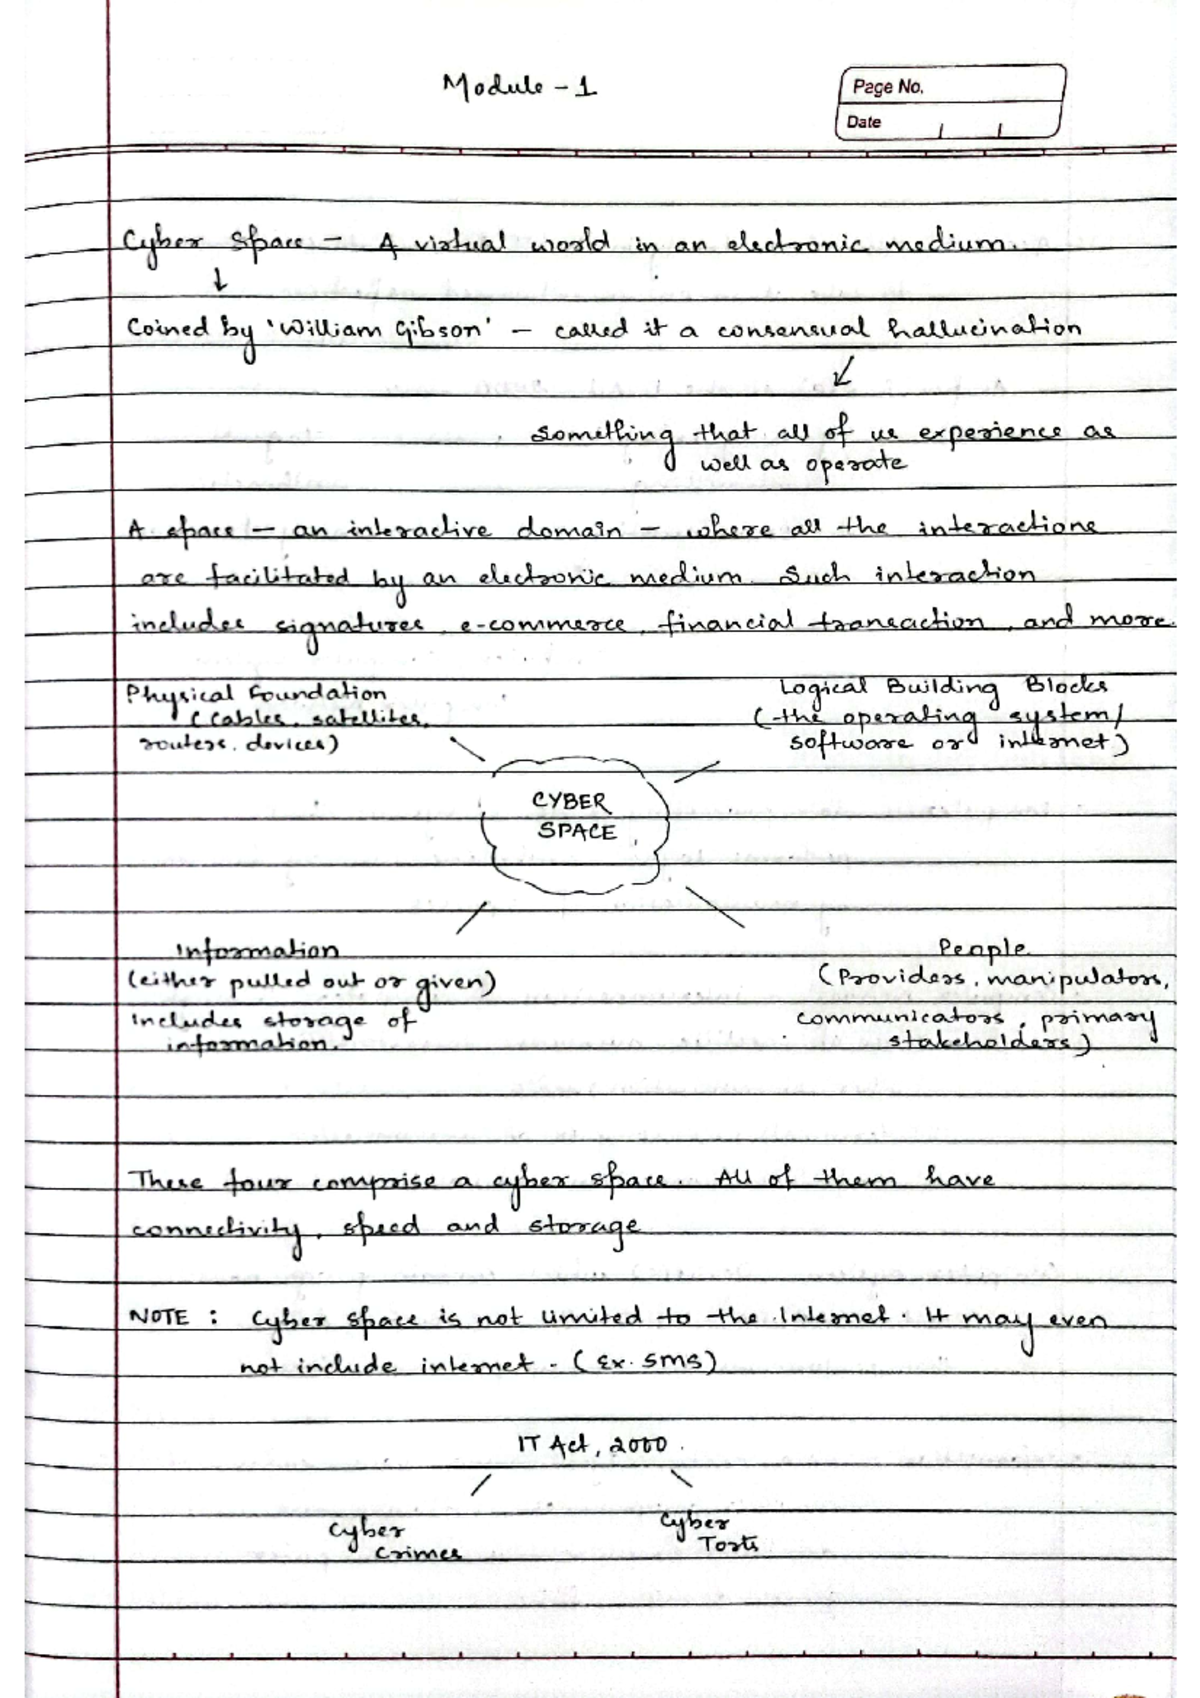 Module - 1
Page No.
Date
Cyber Space - A virtual world in an electronic medium.
↓
Coined by 'William Gibson' - called it a consensual hallucination
↙
something that all of us experience as
well as operate
A space - an interactive domain - where all the interactions
are facilitated by an electronic medium. Such interaction
includes signatures, e-commerce, financial transaction, and more.
Physical Foundation
(cables, satellites,
routers, devices)
Logical Building Blocks
(the operating system/
software or internet)
CYBER
SPACE
Information
(either pulled out or given)
Includes storage of
information.
People
(Providers, manipulators,
communicators, primary
stakeholders)
These four comprise a cyber space. All of them have
connectivity, speed and storage
NOTE : Cyber space is not limited to the Internet. It may even
not include internet. (Ex. SMS)
IT Act, 2000.
Cyber
Crimes
Cyber
Torts